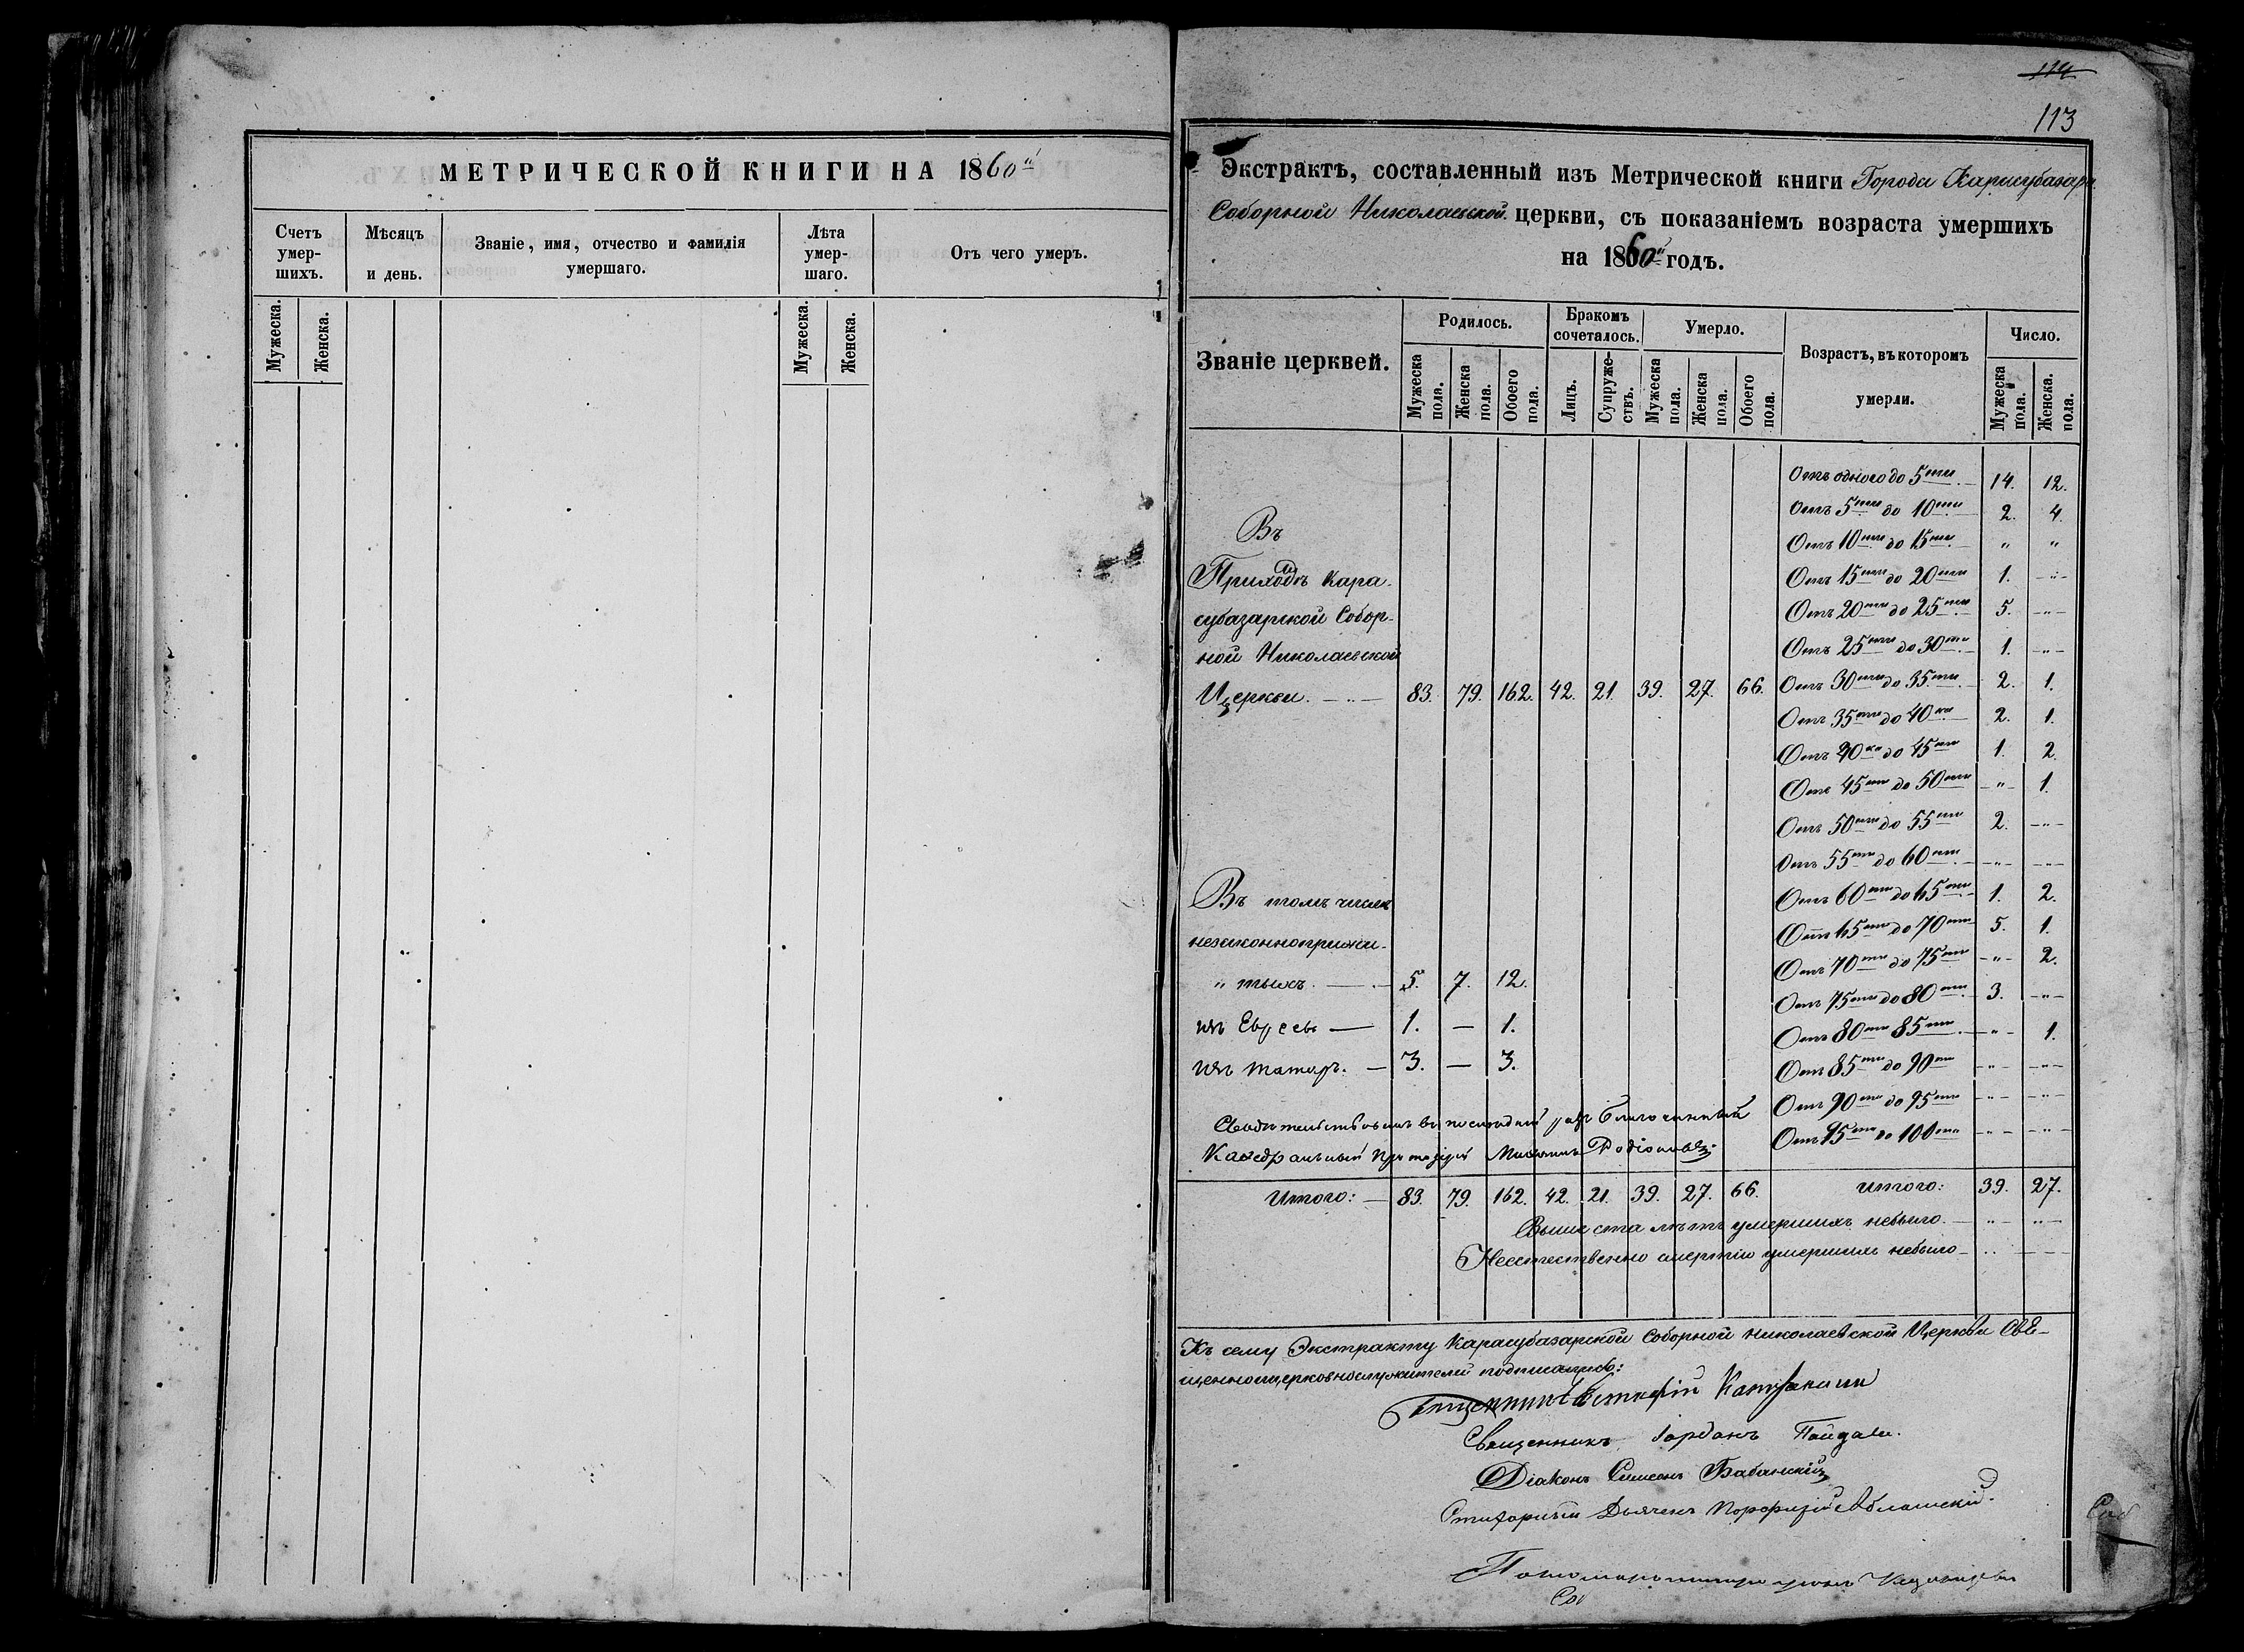 МЕТРИЧЕСКОЙ КНИГИ НА 1860й
Счетъ умер-шихъ.
Мѣсяцъ и день.
Званіе, имя, отчество и фамилія умершаго.
Лѣта умер-шаго.
Отъ чего умеръ.
Мужеска. Женска. Мужеска. Женска.
114
113
Экстрактъ, составленный изъ Метрической книги Города Карасубазара
Соборной Николаевской церкви, съ показаніемъ возраста умершихъ
на 1860й годъ.
Званіе церквей.
Родилось.
Бракомъ сочеталось.
Умерло.
Возрастъ, въ которомъ умерли.
Число.
Мужеска пола. Женска пола. Обоего пола. Лицъ. Супруже-ствъ. Мужеска пола. Женска пола. Обоего пола. Мужеска пола. Женска. пола.
Отъ одного до 5ти 14. 12.
Отъ 5ти до 10ти 2. 4.
Отъ 10ти до 15ти " "
Отъ 15ти до 20ти 1. -"-
Отъ 20ти до 25ти 5. -"-
Отъ 25ти до 30ти 1. -"-
Отъ 30ти до 35ти 2. 1.
Отъ 35ти до 40ка 2. 1.
Отъ 40ка до 45ти 1. 2.
Отъ 45ти до 50ти -"- 1.
Отъ 50ти до 55ти 2. -"-
Отъ 55ти до 60ти -"- -"-
Отъ 60ти до 65ти 1. 2.
Отъ 65ти до 70ти 5. 1.
Отъ 70ти до 75ти -"- 2.
Отъ 75ти до 80ти 3. -"-
Отъ 80ти 85ти -"- 1.
Отъ 85ти до 90ти -"- -"-
Отъ 90ти до 95ти -"- -"-
Отъ 95ти до 100та -"- -"-
Въ
Приходѣ Кара-
субазарской Собор-
ной Николаевской
Церкви. 83. 79. 162. 42. 21. 39. 27. 66.
Въ томъ числѣ
незаконноприжи-
" тыхъ. 5. 7. 12.
изъ Евреевъ — 1. — 1.
изъ татаръ. — 3. — 3.
Свидѣтельствовалъ въ послѣдній разъ Благочинный
Каѳедральный Протоіерей Михаилъ Родіоновъ
Итого: — 83. 79. 162. 42. 21. 39. 27. 66.
Итого: 39. 27.
Выше ста лѣтъ умершихъ небыло. -"- -"-
Неестественно смертію умершихъ небыло
Къ сему Экстракту Карасубазарской Соборной Николаевской Церкви Свя-
щенноцерковнослужители подписались:
Священникъ Іорданъ Пайдаси.
Діаконъ Симеонъ Бабанскій
Стихарный Дьячекъ Порфирій
Пономарь